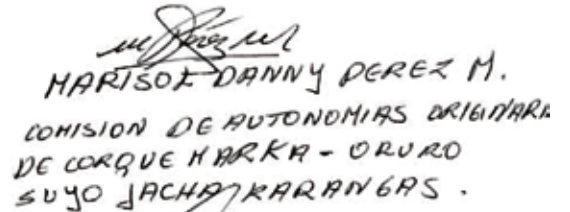 MARISOL DANNY PEREZ M.
COMISION DE AUTONOMIAS ORIGINARI
DE CORQUE MARKA - ORURO
SUYO JACHA KARANGAS.